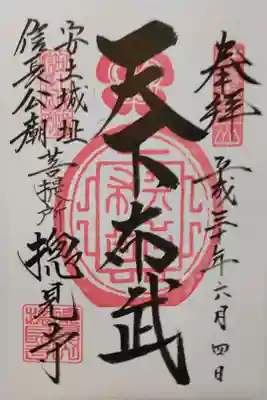 奉拝
平成三十年六月四日
天下布武
安土城址
信長公廟
菩提所
摠見寺